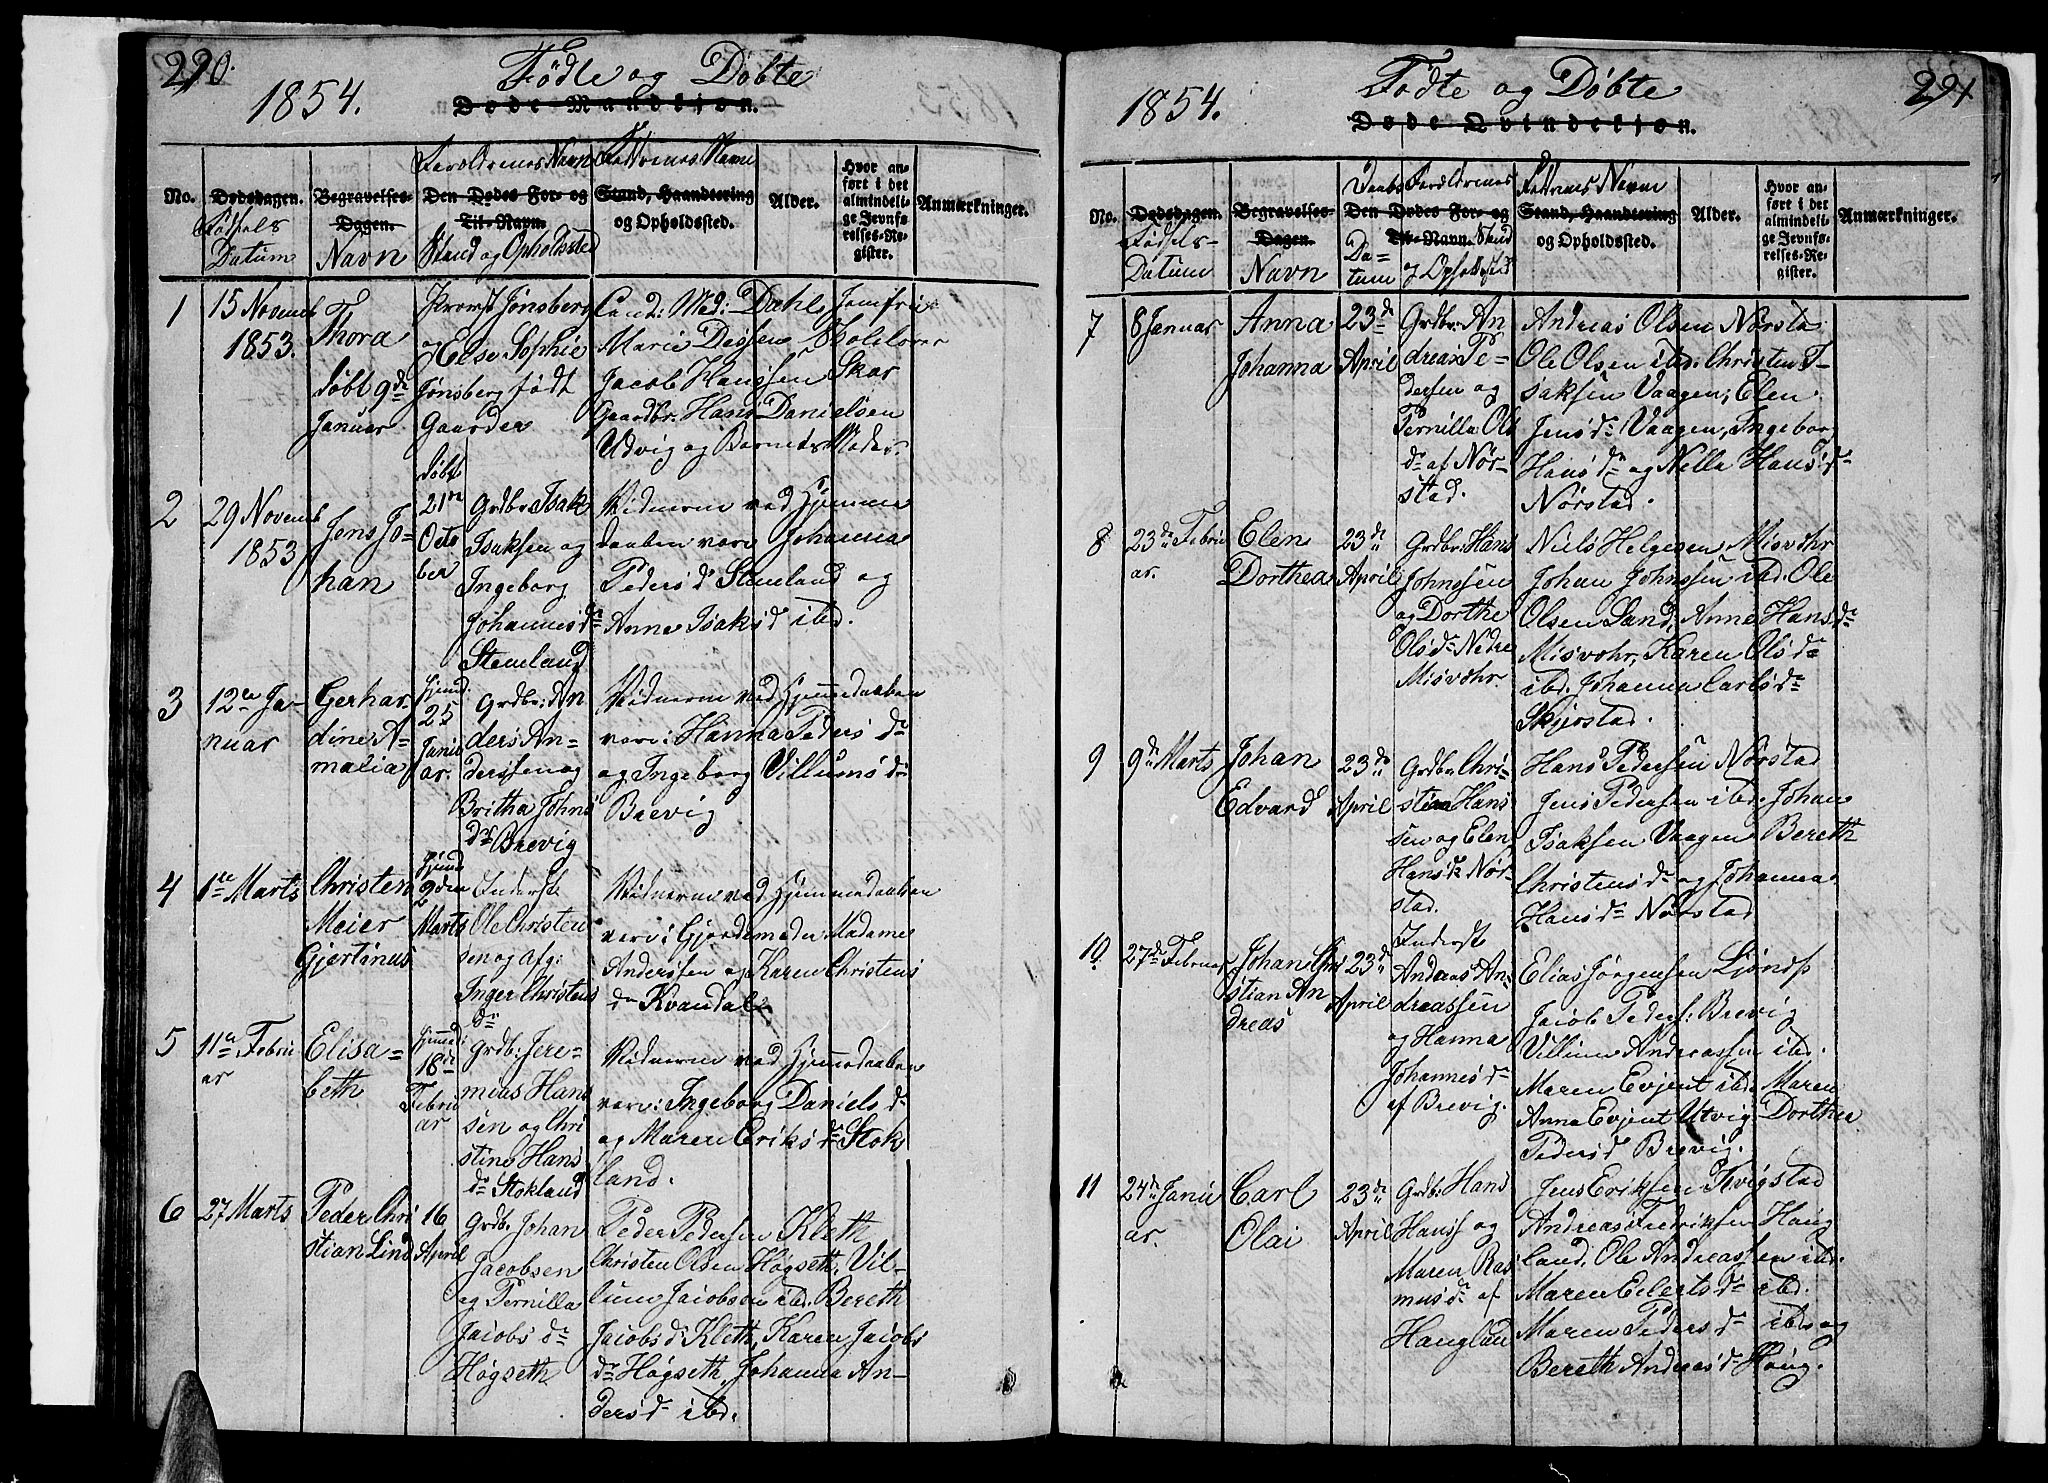 290.
1854.
Födte og Döbte
Døde Mandkjøn.
No.
Dødsdagen.
Födsels
Datum
Begravelses-
Dagen.
Navn
Forældrenes Navn
Den Dødes For- og
Til-Navn.
Stand og Opholdssted
Faddrenes Navn
Stand, Haandtering
og Opholdssted.
Alder.
Hvor an-
ført i det
almindeli-
ge Jevnfø-
relses-Re-
gister.
Anmærkninger.
1
15 Novemb
1853.
Thora
döbt 9de
Januar
Provst Jönsberg
og
Else Sophie
Jönsberg födt
Gaarder
Cand: Med: Dahl, Jomfru
Marie Dessen
Jacob Hanssen Skar
Gaardbr. Hans Danielsen
Udvig og Barnets Moder.
2
29 Novemb
1853
Jens Jo-
han
döbt
21de
Octo
ber
Grdbr. Isak
Isaksen og
Ingeborg
Johannesdr
Stemland
Vidnerne ved Hjemme
daaben vare Johanna
Pedersd. Stemland og
Anne Isaksd ibd.
3
12te Ja-
nuar
Gerhar-
dine A-
malia
hjemd.
25
Janu
ar.
Grdbr: An
ders An-
derssen og
Britha Johns
dr Brevig
Vidnerne ved Hjemmedaaben
vare: Hanna Peders dr
og Ingeborg Villumsdr
Brevig
4
1ste Marts
Christen
Meier
Gjertinus
hjemd
2den
Marts
Inderst
Ole Christen
sen og afg:
Inger Christens
dr
Vidnerne ved Hjemmedaaben
vare: Gjordemoder Madame
Andersen og Karen Christens
dr Kvandal
5
11te Febru
ar
Elisa-
beth
hjemd.
18de
Febru
ar
Grdb: Jere-
mias Hans
sen og Chri
stine Hans
dr Stokland
Vidnerne ved Hjemmedaaben
vare: Ingeborg Daniels dr
og Maren Eriksdr Stok
land.
6
27 Marts
Peder Chri
stian Lind
16
April
Grdb. Johan
Jacobsen
og Pernilla
Jacobs dr
Högseth
Peder Pedersen Kleth
Christen Olsen Högseth, Vil-
lum Jacobsen ibd. Bereth
Jacobs d. Kleth, Karen Jacobs
dr Högseth, Johanna An-
dersdr ibd.
291
1854.
Födte og Döbte
Døde Qvindekjøn.
No.
Dødsdagen.
Födsels-
Datum
Begravelses-
Dagen.
Navn
Daabs
Da-
tum
Forældrenes
Den Dødes For- og
Til-Navn. Stand
og Opholdssted
Faddrenes Navn
Stand, Haandtering
og Opholdssted.
Alder.
Hvor an-
ført i det
almindeli-
ge Jevnfø-
relses-Re-
gister.
Anmærkninger.
7
8 Januar
Anna
Johanna
23de
April
Grdbr: An
dreas Pe-
dersen og
Pernilla Ols
dr af Nör-
stad.
Andreas Olsen Nörstad
Ole Olsen ibd: Christen I-
saksen Vaagen, Elen
Jensdr Vaagen, Ingeborg
Hansdr og Nella Hansdr
Nörstad.
8
23de Febru
ar.
Elen
Dorthea
23de
April
Grdbr: Hans
Johnssen
og Dorthe
Olsdr Nedre
Misvohr
Niels Helgesen Misvohr
Johan Johnssen ibd. Ole
Olsen Sand, Anne Hansdr
Misvohr, Karen Olsdr
ibd. Johanna Carlsdr
Skjerstad.
9
9de Marts
Johan
Edvard
23de
April
Grdbr Chri-
stian Hans
sen og Elen
Hansd. Nör-
stad.
Hans Pedersen Nörstad
Jens Pedersen ibd. Johan
Isaksen Vaagen Bereth
Christensdr og Johanna
Hansdr Nörstad
10
27de Februar
Johan Chri
stian An
dreas
23de
April
Inderst
Andreas An-
dreassen
og Hanna
Johannesdr
af Brevig.
Elias Jörgensen
Jacob Peders: Brevig
Villum Andreassen ibd.
Maren Evjent ibd. Maren
Anne Evjent Utvig Dorthea
Pedersd Brevig.
11
24de Janu
ar.
Carl
Olai
23de
April
Grdb: Hans
Hanss og
Maren Ras
musdr af
Hauglan
Jens Eriksen Kvigstad
Andreas Fredriksen Haug
land. Ole Andreassen ibd.
Maren Eilertsdr ibd.
Maren Peders dr ibd og
Bereth Andreasdr Haug.